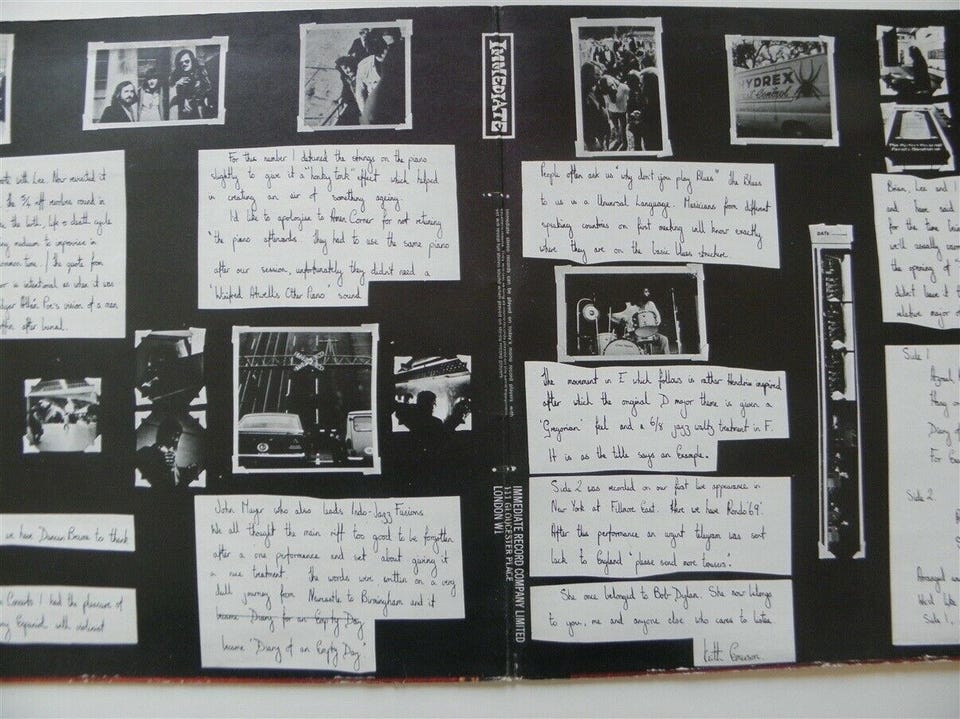 ote with Lee. Now revisited it
the 3/4 riff revolves round in
the birth, life & death cycle
ng medium to improvise in
common time. / the quote from
or a intentional as what it was
dgar Allan Poe's vision of a man
ffin after burial.
we have Duncan Browne to thank
Concerts I had the pleasure of
ny Espanol with violinist
For this number I detuned the strings on the piano
slightly to give it a "honky tonk" effect which helped
in creating an air of something ageing.
I'd like to apologise to Amen Corner for not retuning
the piano afterwards. they had to use the same piano
after our session, unfortunately they didn't need a
'Winifred Atwell's Other Piano" sound
John Mayer who also leads Indo-Jazz Fusions
We all thought the main riff too good to be forgotten
after a one performance and set about giving it
a nice treatment. the words were written on a very
dull journey from Newcastle to Birmingham and it
became Diary for an Empty Day
became 'Diary of an Empty Day'
IMMEDIATE
Immediate stereo records can be played on today's mono record players with
IMMEDIATE RECORD COMPANY LIMITED
111 GLOUCESTER PLACE
LONDON W1
HYDREX
Pest Control
People often ask us "why don't you play Blues" the Blues
to us is a Universal Language. Musicians from different
speaking countries on first meeting will know exactly
where they are on the basic blues structure.
The movement in E which follows is rather Hendrix inspired
after which the original D major theme is given a
'Gregorian' feel and a 6/8 jazz waltz treatment in F.
It is as the title says an Example.
Side 2 was recorded on our first live appearance in
New York at Fillmore East. Here we have Rondo '69'
After this performance an urgent telegram was sent
back to England "please send more trousers".
She once belonged to Bob Dylan. She now belongs
to you, me and anyone else who cares to listen
Keith Emerson.
DATE
Brian, Lee and I
and have said
for the time being
we'll usually
the opening of
didn't leave it
relative major of
Side 1
Hang on
Diary of
For Ex
Side 2
Arranged and
Side 1,